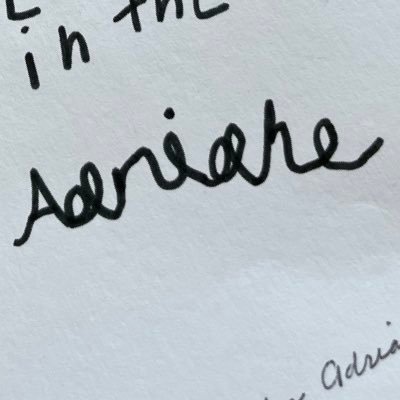 in the
Adriane
Adria